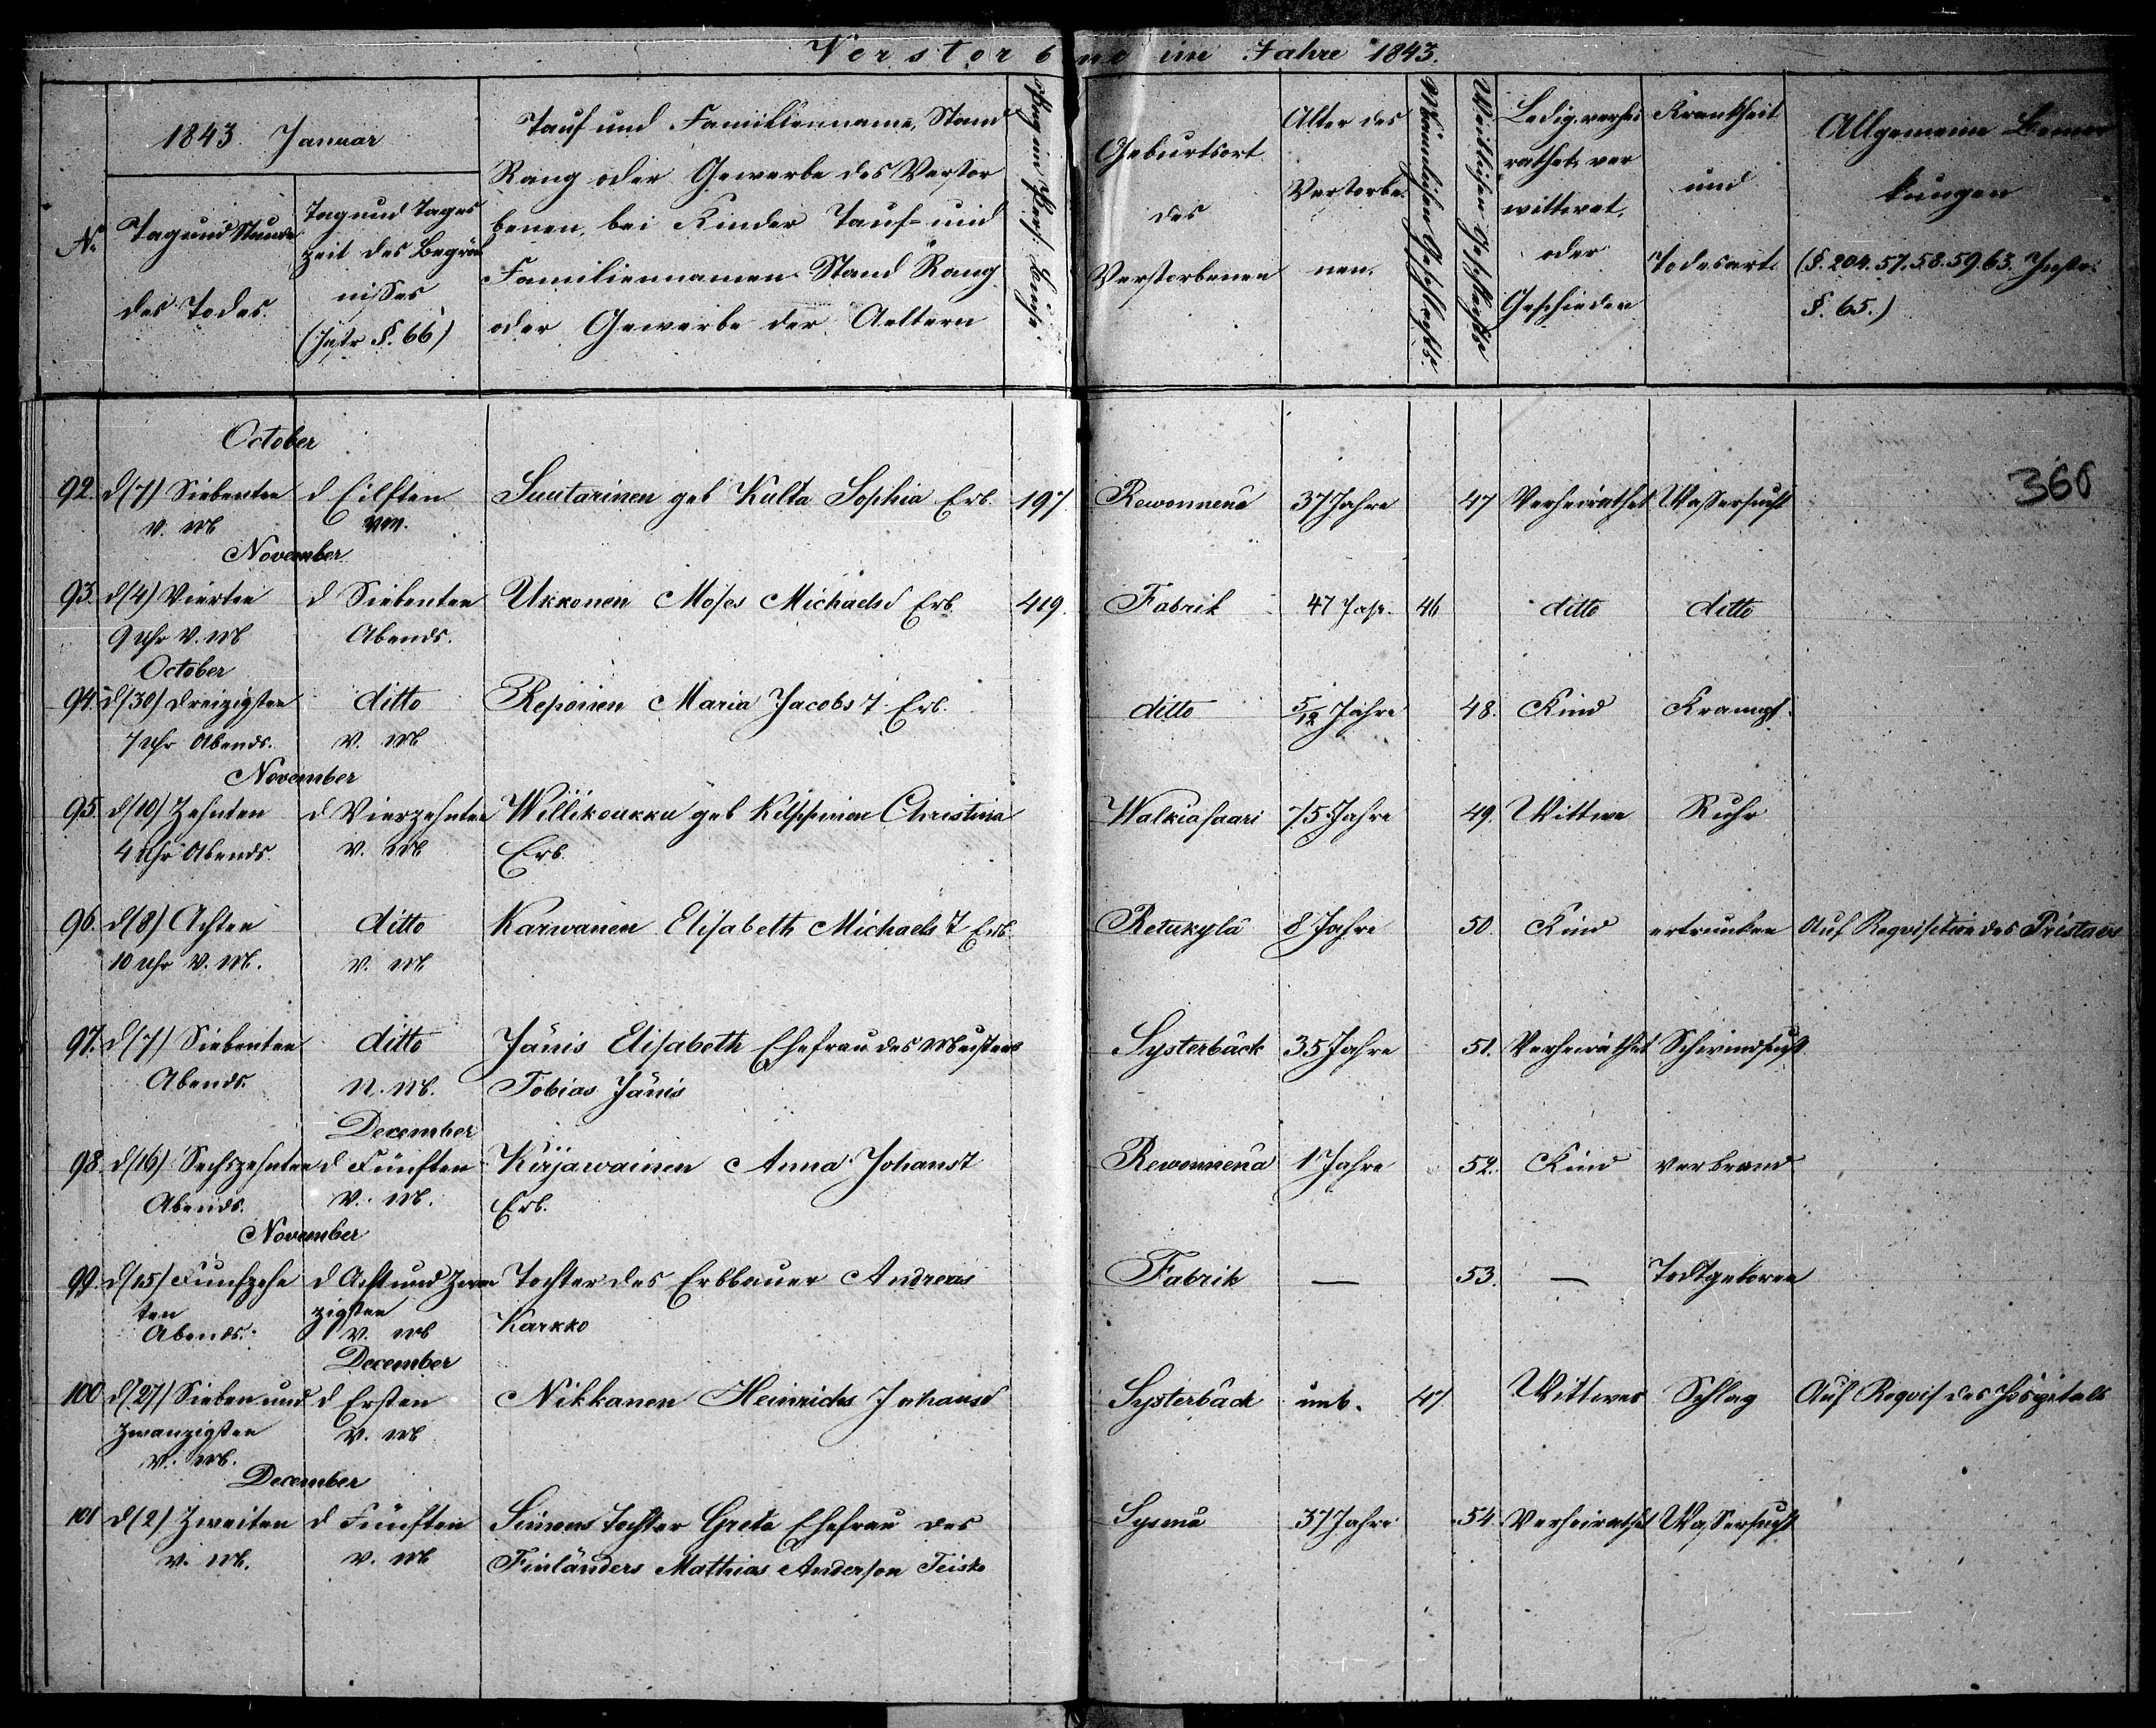 Verstorbene im Jahre 1843.
1843. Januar
No
Tag und Stunde
des Todes.
Tag und Tages
zeit des Begräb
nisses
(Instr §. 66)
Tauf und Familienname, Stand
Rang oder Gewerbe des Verstor
benen, bei Kinder Tauf- und
Familiennamen Stand Rang
oder Gewerbe der Aeltern
Geburtsort
des
Verstorbenen
Alter des
Verstorbe
nen.
Männlichen Geschlechts.
Weiblichen Geschlechts
Ledig, verhei
rathet, ver
wittwet,
oder
Geschieden
Krankheit
und
Todesart.
Allgemeine Bemer
kungen
(§. 204. 57. 58. 59. 63. Instr.
§. 65.)
October
360
92. d (7) Siebenten d Eilften Suutarinen geb Kulta Sophia Erb. 197. Rewonnenä 37 Jahre 47 Verheirathet Wassersucht
V. M VM.
November
93. d (4) Vierten d Siebenten Ukkonen Moses Michaels d Erb. 419. Fabrik 47 Jahr. 46 ditto ditto
9 Uhr V. M Abends.
October
94. d (30) Dreizigsten ditto Reponen Maria Jacobs T. Erb. ditto 5/12 Jahre 48. Kind Krampf.
7 Uhr Abends. V. M
November
95. d (10) Zehnten d Vierzehnten Willikoukku geb Christina Walkiasaari 75 Jahre 49. Wittwe Ruhr
4 Uhr Abends. V. M Erb.
96. d (8) Achten ditto Karwanen Elisabeth Michaels T Erb Retukylä 8 Jahre 50. Kind ertrunken Auf Requisition des Pristaws
10 Uhr V. M. V. M
97. d (7) Siebenten ditto Jänis Elisabeth Ehefrau des Meisters Systerbäck 35 Jahre 51. Verheirathet Schwindsucht
Abends. N. M. Tobias Jänis
December
98. d (16) Sechszehnten d Fünften Kirjawainen Anna Johans T Rewonnenä 1 Jahre 52. Kind verbrand
Abends. V. M. Erb.
November
99. d (15) Funfzehn d Acht und Zwan Tochter des Erbbauer Andreas Fabrik — 53. — Todtgeboren
ten zigsten
Abends. V. M Karkko
December
100 d (27) Sieben und d Ersten Nikkanen Heinrich Johans d Systerbäck unb. 47. Wittwer Schlag Auf Requis des Hospitals
zwanzigsten V. M
V. M.
December
101 d (2) Zweiten d Fünften Simons Tochter Greta Ehefrau des Sysmä 37 Jahre 54. Verheirathet Wassersucht
V. M. V. M Finländers Mathias Anderson Teisko